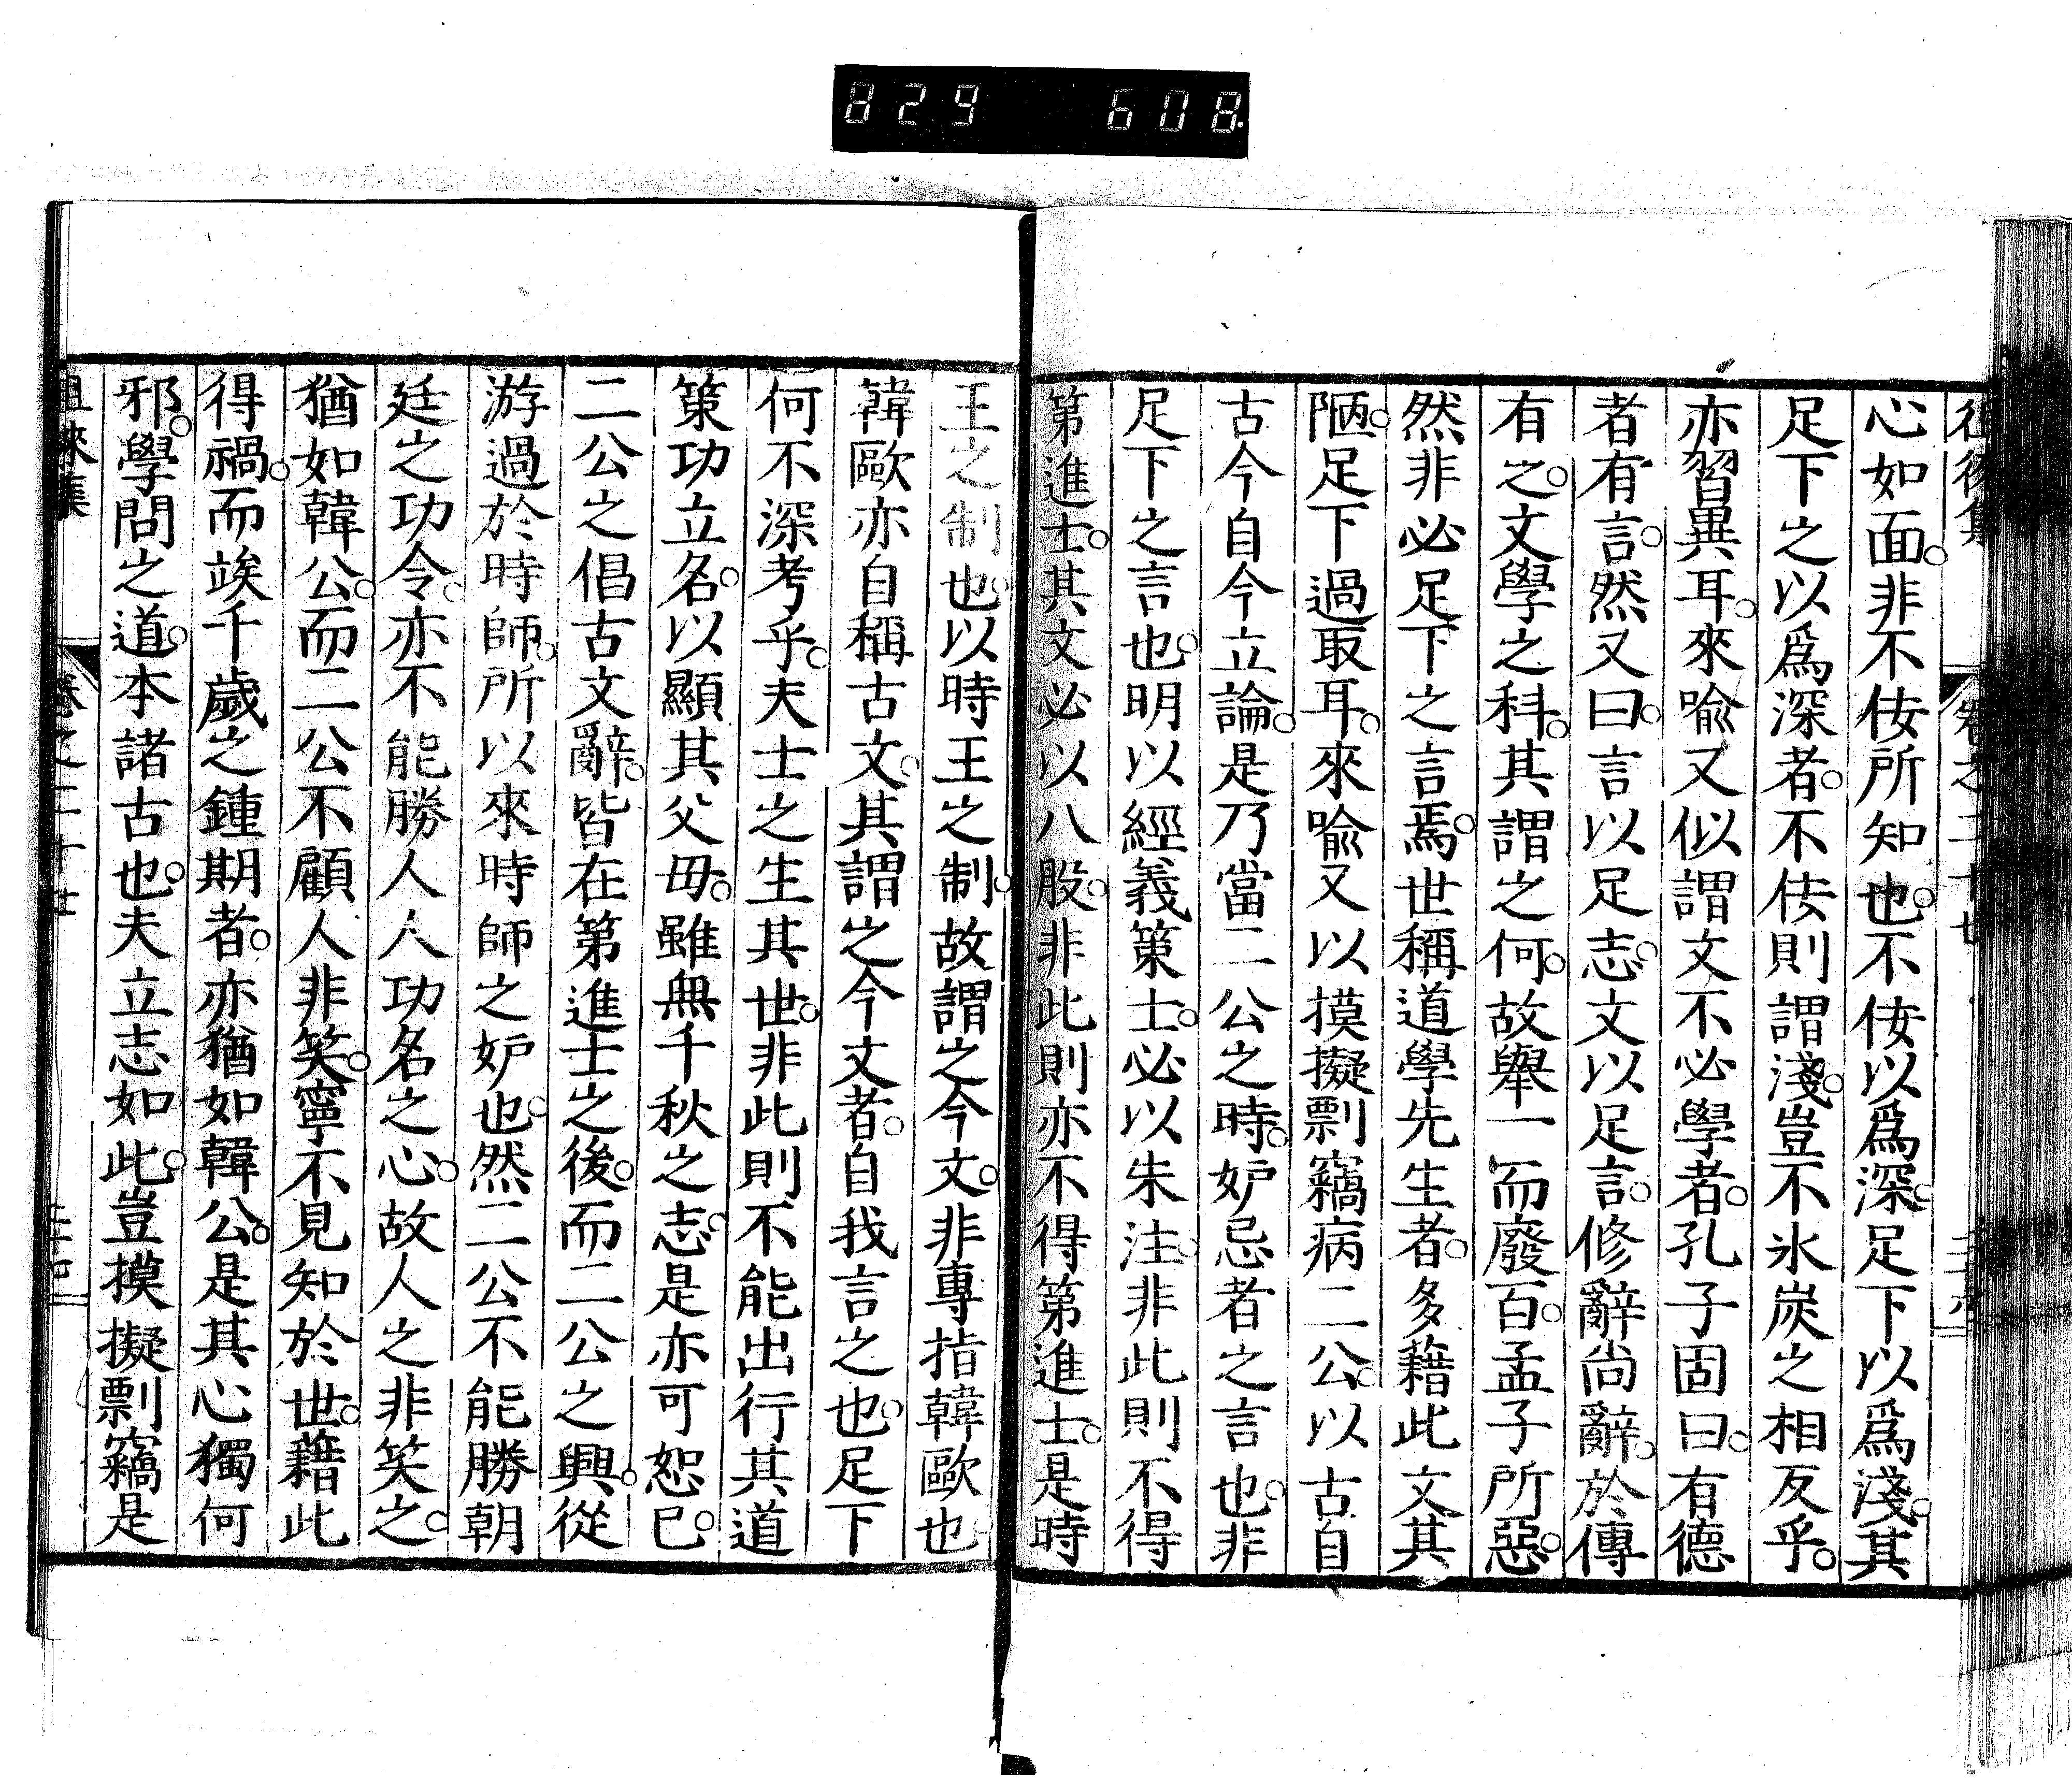 829 608
心如面。非不佞所知也。不佞以爲深。足下以爲淺。其
足下之以爲深者。不佞則謂淺。豈不氷炭之相反乎。
亦習異耳。來喩又似謂文不必學者。孔子固曰。有德
者有言。然又曰。言以足志。文以足言。修辭尚辭。於傳
有之。文學之科。其謂之何。故舉一而廢百。孟子所惡。
然非必足下之言焉。世稱道學先生者。多藉此文其
陋。足下過取耳。來喩又以摸擬剽竊病二公。以古自
古今自今立論。是乃當二公之時。妒忌者之言也。非
足下之言也。明以經義策士。必以朱注。非此則不得
第進士。其文必以八股。非此則亦不得第進士。是時
王之制也。以時王之制。故謂之今文。非專指韓歐也
韓歐亦自稱古文。其謂之今文者。自我言之也。足下
何不深考乎。夫士之生其世。非此則不能出行其道
策功立名。以顯其父毋。雖無千秋之志。是亦可恕已。
二公之倡古文辭。皆在第進士之後。而二公之興。從
游過於時師。所以來時師之妒也。然二公不能勝朝
廷之功令。亦不能勝人人功名之心。故人之非笑之。
猶如韓公。而二公不顧人非笑。寧不見知於世。藉此
得禍。而竢千歲之鍾期者。亦猶如韓公。是其心獨何
邪。學問之道。本諸古也。夫立志如此。豈摸擬剽竊是
徠集 卷之二十七